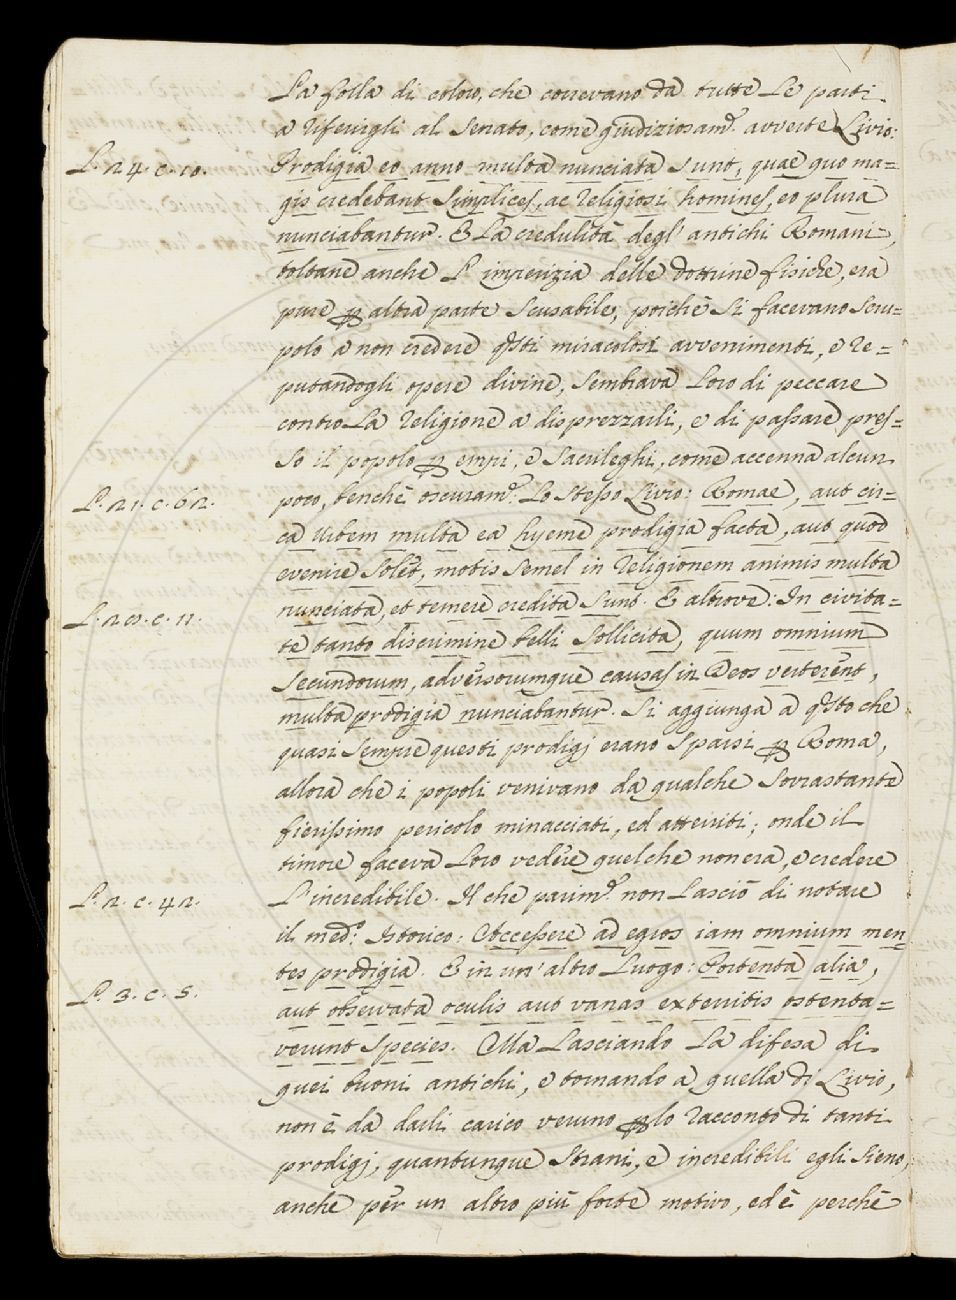 La folla di coloro, che correvano da tutte Le parti
a riferirgli al Senato, come giudiziosam.e avverte Livio:
L. 24. c. 10.
Prodigia eo anno multa nunciata sunt, quae quo ma=
gis credebant Simplices, ac religiosi homines, eo plura
nunciabantur. E La credulità degl' antichi Romani,
toltane anche L' imperizia delle dottrine fisiche, era
pure p altra parte Scusabile, poichè Si facevano Scru=
polo a non credere qsti miracolosi avvenimenti, e re=
putandogli opere divine, Sembrava Loro di peccare
contro La religione a disprezzarli, e di passare pres=
so il popolo p empi, e Sacrileghi, come accenna alcun
L. 21. c. 62.
poco, benchè oscuram.e Lo Stesso Livio: Romae, aut cir=
ca Urbem multa ea hyeme prodigia facta, aut quod
evenire Solet, motis Semel in religionem animis multa
L. 28. c. 11.
nunciata, et temere credita Sunt. E altrove: In civita=
te tanto discrimine belli Sollicita, quum omnium
Secundorum, adversorumque causas in Deos verterent,
multa prodigia nunciabantur. Si aggiunga a qsto che
quasi Sempre questi prodigj erano Sparsi p Roma,
allora che i popoli venivano da qualche Sovrastante
fierissimo pericolo minacciati, ed atterriti; onde il
timore faceva Loro vedere quel che non era, e credere
L. 2. c. 42.
L'incredibile. Il che parim.e non Lasciò di notare
il med.o Istorico: Accessere ad egros iam omnium men
tes prodigia. E in un' altro Luogo: Portenta alia,
L. 3. c. 5.
aut observata oculis aut vanas exterritis ostenta=
verunt Species. Ma Lasciando La difesa di
quei buoni antichi, e tornando a quella di Livio,
non è da darli carico veruno plo racconto di tanti
prodigj, quantunque Strani, e incredibili egli Sieno,
anche per un altro più forte motivo, ed è perchè